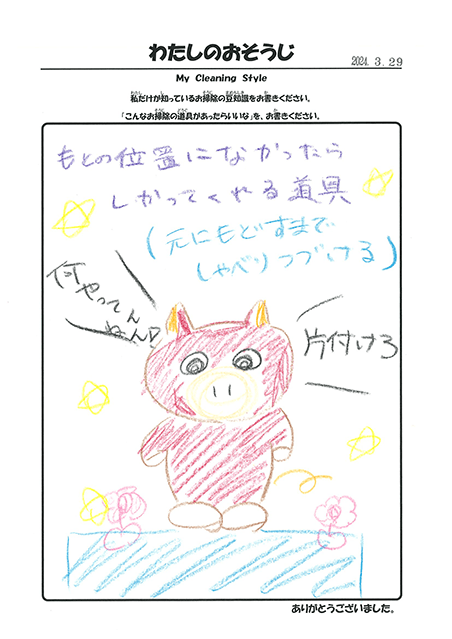 わたしのおそうじ
2024. 3. 29
My Cleaning Style
私だけが知っているお掃除の豆知識をお書きください。
「こんなお掃除の道具があったらいいな」を、お書きください。
もとの位置になかったら
しかってくれる道具
(元にもどすまで
しゃべりつづける)
何
やってん
ねん
片付けろ
ありがとうございました。